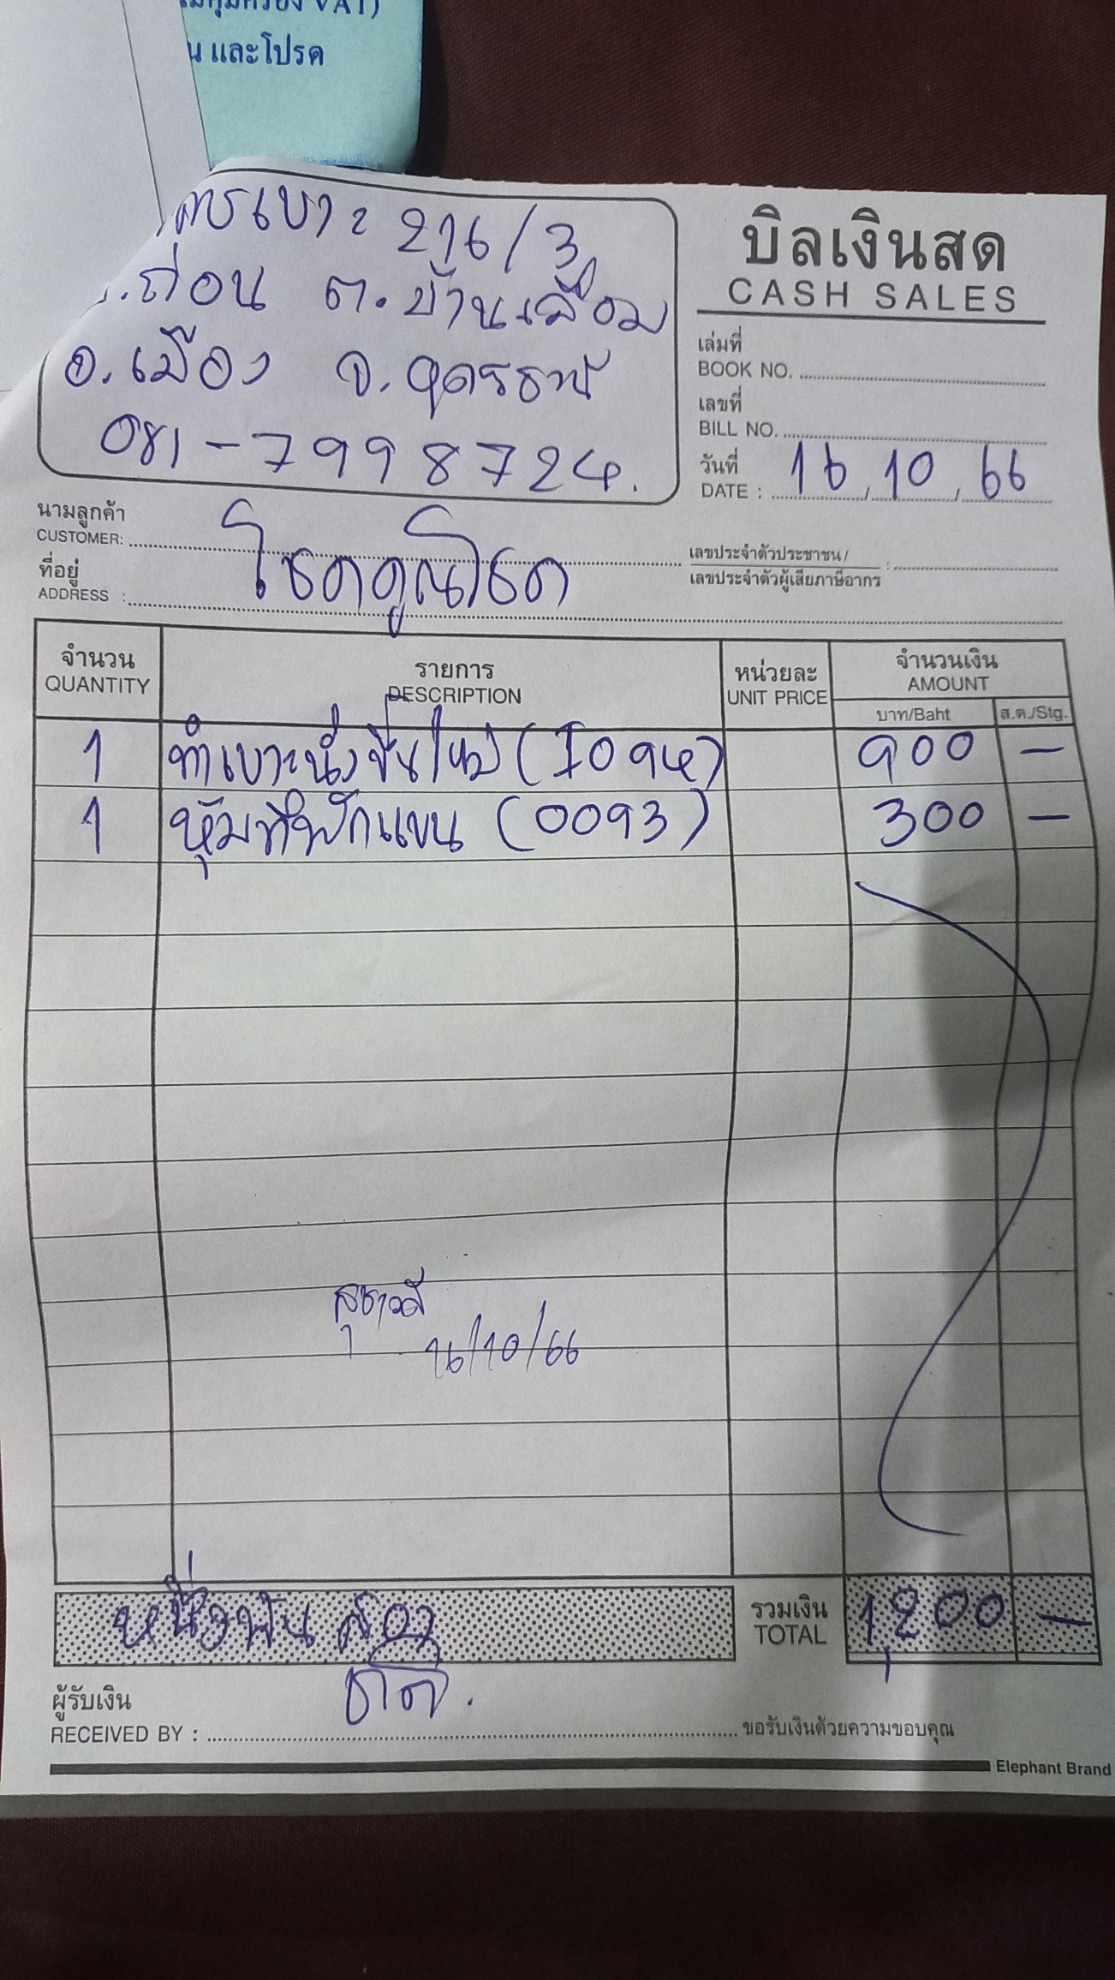 น และโปรด
216/3
ต.บ้านเลื่อม
อ.เมือง จ.อุดรธานี
081-7998724.
บิลเงินสด
CASH SALES
เล่มที่
BOOK NO.
เลขที่
BILL NO.
วันที่
DATE : 16, 10, 66
นามลูกค้า
CUSTOMER:
โชคคูณโชค
เลขประจำตัวประชาชน/
เลขประจำตัวผู้เสียภาษีอากร :
ที่อยู่
ADDRESS :
จำนวน รายการ หน่วยละ จำนวนเงิน
QUANTITY DESCRIPTION UNIT PRICE AMOUNT
บาท/Baht ส.ต./Stg.
1 ทำเบาะนั่งขึ้นใหม่ (I094) 900 -
1 หุ้มที่พักแขน (0093) 300 -
16/10/66
หนึ่งพันสอง รวมเงิน 1,200 -
TOTAL
ผู้รับเงิน
RECEIVED BY : ขอรับเงินด้วยความขอบคุณ
Elephant Brand